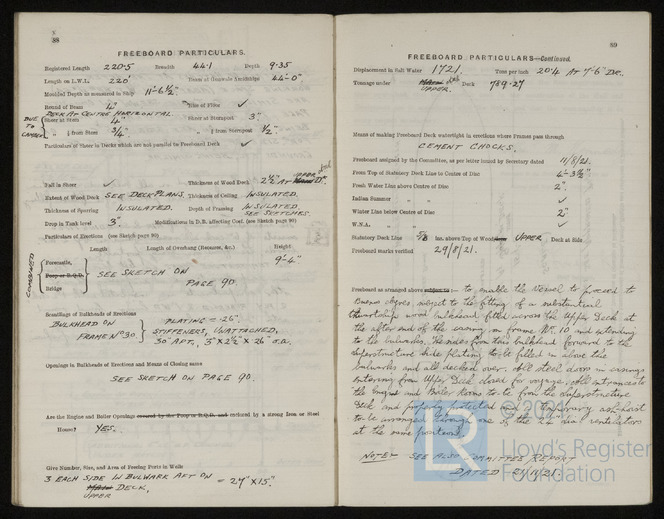 88
FREEBOARD PARTICULARS.
Registered Length 220·5 Breadth 44·1 Depth 9·35
Length on L.W.L. 220' Beam at Gunwale Amidships 44'-0"
Moulded Depth as measured in Ship 11'-6½"
Round of Beam 4" Rise of Floor ✓
DECK AT CENTRE HORIZONTAL.
DUE TO CAMBER
Sheer at Stem 4" Sheer at Sternpost 3"
" ⅛ from Stem ¾" " ⅛ from Sternpost ½"
Particulars of Sheer in Decks which are not parallel to Freeboard Deck ✓
Fall in Sheer ✓ Thickness of Wood Deck 2½" AT UPPER DK.
Extent of Wood Deck SEE DECK PLANS. Thickness of Ceiling INSULATED.
Thickness of Sparring INSULATED. Depth of Framing INSULATED. SEE SKETCHES.
Drop in Tank level 3". Modifications in D.B. affecting Coef. (see Sketch page 90)
Particulars of Erections (see Sketch page 90)
Length Length of Overhang (Recesses, &c.) Height
COMBINED
Forecastle, 9'-4"
Poop or R.Q.D.
Bridge
SEE SKETCH ON
PAGE 90
Scantlings of Bulkheads of Erections
BULKHEAD ON
FRAME Nº 30.
PLATING = ·26".
STIFFENERS, UNATTACHED,
30" APT, 3" X 2½" X ·26" O.A.
Openings in Bulkheads of Erections and Means of Closing same
SEE SKETCH ON PAGE 90.
Are the Engine and Boiler Openings covered by the Poop or R.Q.D. and enclosed by a strong Iron or Steel
House? YES.
Give Number, Size, and Area of Freeing Ports in Wells
3 EACH SIDE IN BULWARK AFT ON
MAIN DECK, = 24" X 15".
UPPER
89
FREEBOARD PARTICULARS—Continued.
Displacement in Salt Water 1721. Tons per inch 20·4 AT 7'-6" DR.
Tonnage under UPPER Deck 789·27
Means of making Freeboard Deck watertight in erections where Frames pass through
CEMENT CHOCKS.
Freeboard assigned by the Committee, as per letter issued by Secretary dated 11/8/21.
From Top of Statutory Deck Line to Centre of Disc 4'-3½"
Fresh Water Line above Centre of Disc 2".
Indian Summer " " ✓
Winter Line below Centre of Disc 2"
W.N.A. " " ✓
Statutory Deck Line 5/8 Ins. above Top of Wood UPPER Deck at Side
Freeboard marks verified 29/8/21.
Freeboard as arranged above subject to:— to enable the Vessel to proceed to
Buenos Ayres subject to the fitting of a substantial
thwartship wood bulkhead fitted across the Upper Deck at
the after end of the casing, on frame Nº 10 and extending
to the bulwarks. The sides from this bulkhead forward to the
superstructure side plating to be filled in above the
bulwarks and all decked over. All steel doors in casings
entering from Upper Deck closed for voyage. All entrances to
the Engine and Boiler Room to be from the Superstructure
Deck and properly protected
to be arranged through one of the 24" dia ventilators
at the same position.
NOTE:- SEE ALSO COMMITTEE REPORT
DATED
© 2021
LR
Lloyd's Register
Foundation